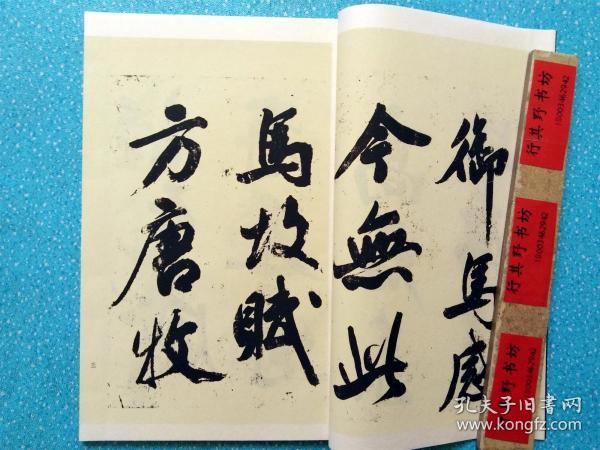 御馬感
今無此
馬故賦
方唐牧
行其野书坊
10003462942
行其野书坊
10003462942
行其野书坊
10003462942
孔夫子旧书网
www.kongfz.com